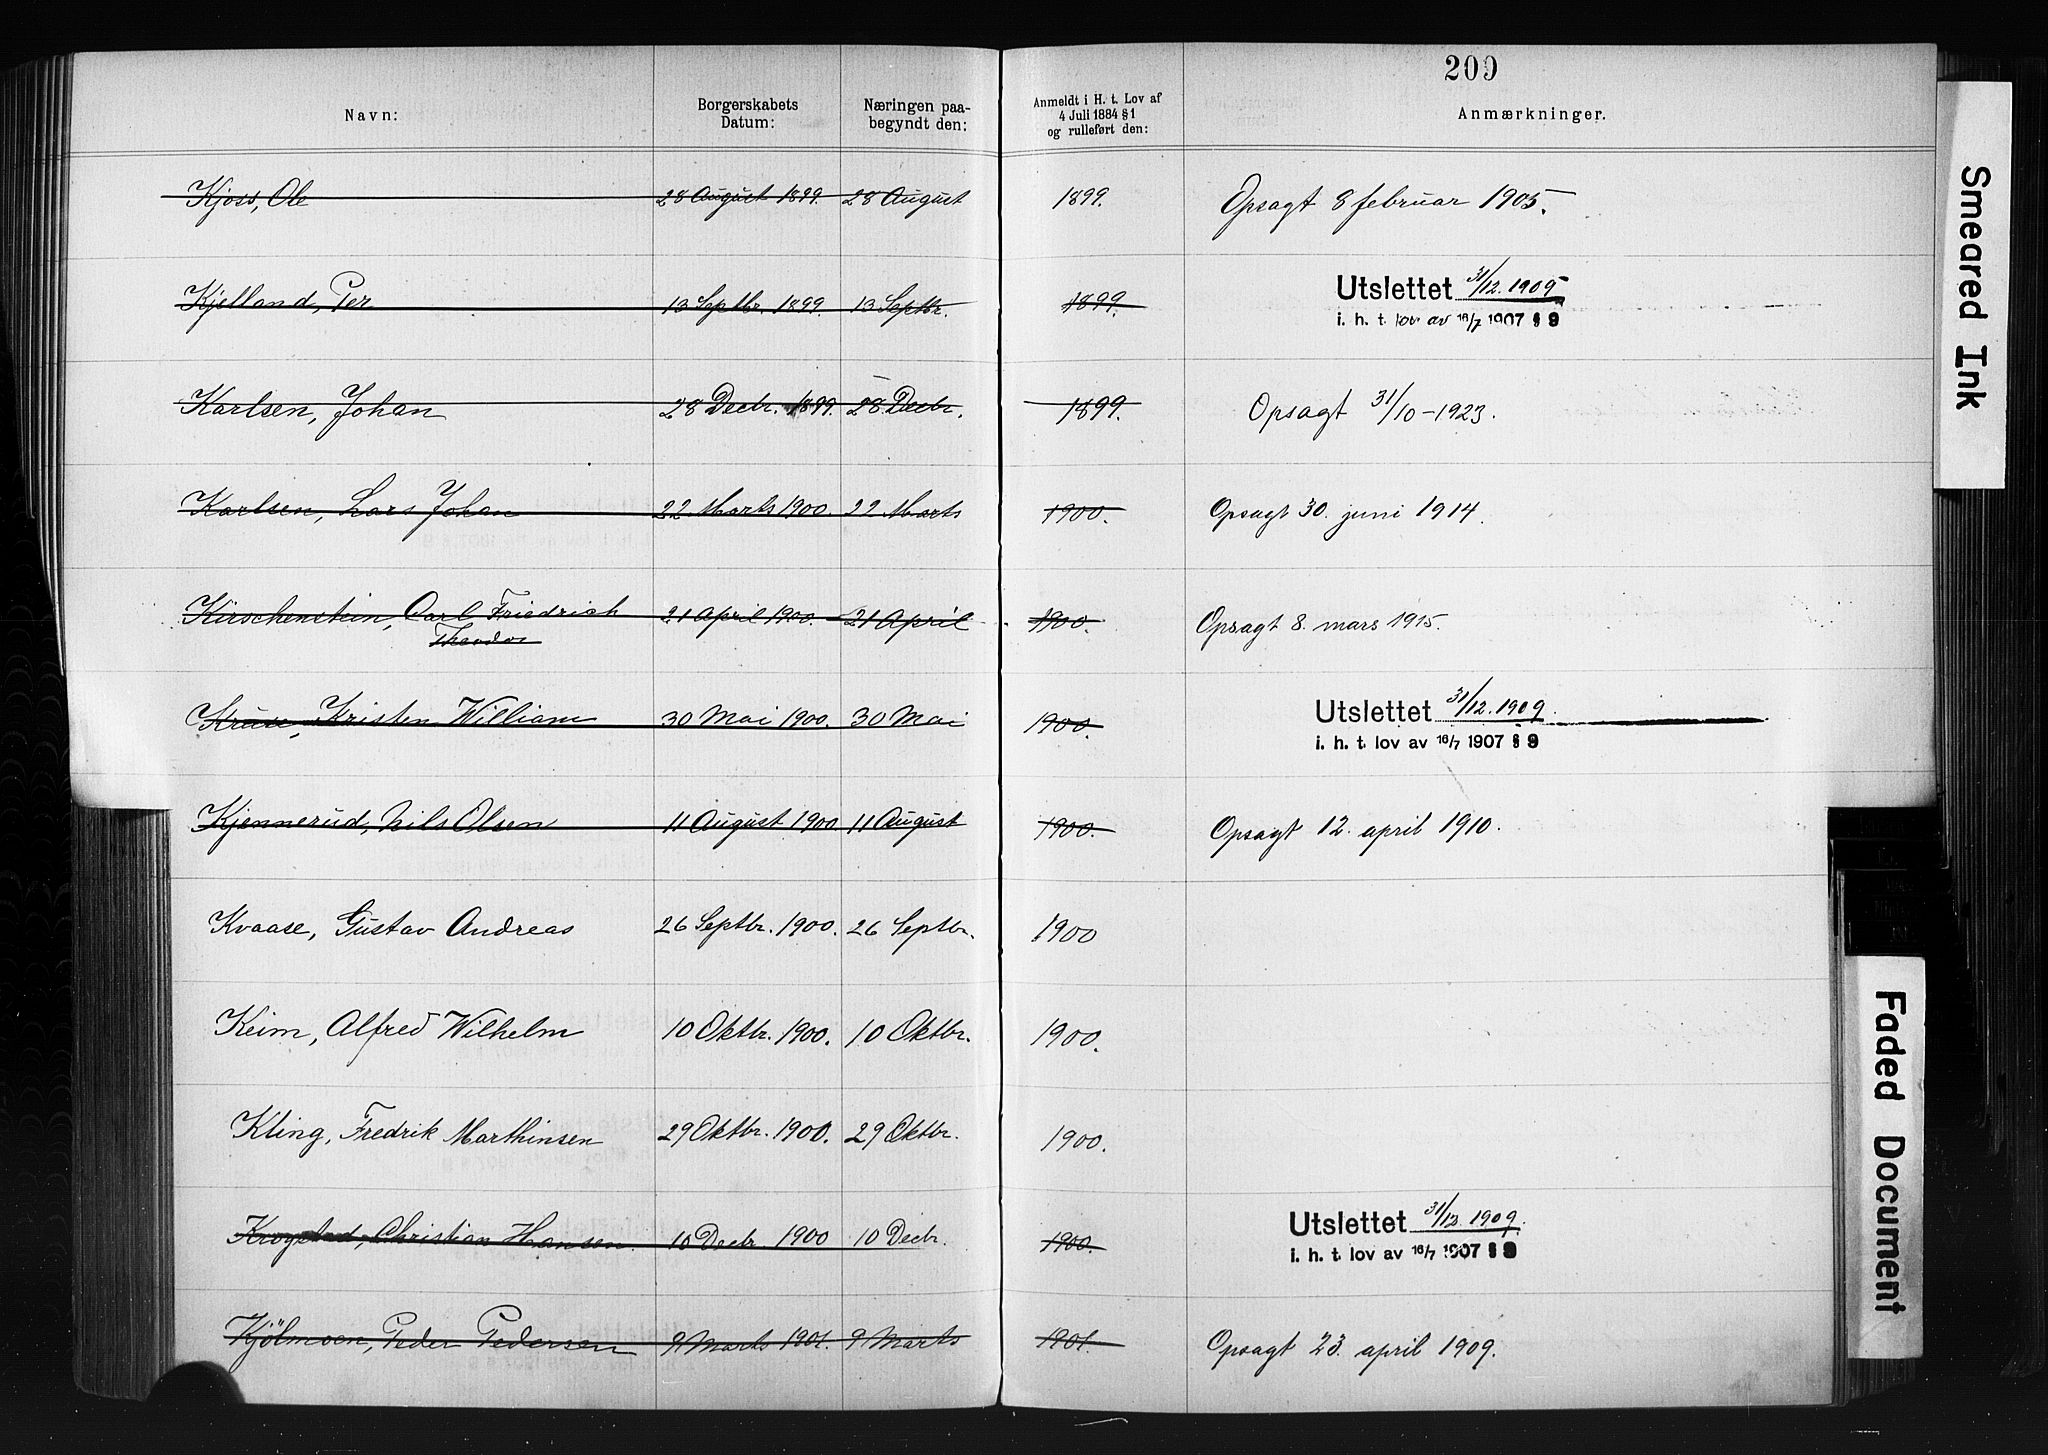 209
Navn:
Borgerskabets Datum:
Næringen paa-begyndt den:
Anmeldt i H. t. Lov af 4 Juli 1884 § 1 og rulleført den:
Anmærkninger.
Kjoss, Ole 28 August 1899. 28 August 1899. Opsagt 8 februar 1905.
Kjelland, Per 13 Septbr. 1899. 13 Septbr. 1899. Utslettet 31/12. 1909
i. h. t. lov av 16/7 1907 § 9
Karlsen, Johan 28 Decbr. 1899. 28 Decbr. 1899. Opsagt 31/10-1923.
Karlsen, Lars Johan 22 Marts 1900. 22 Marts 1900. Opsagt 30. juni 1914.
Kirschenstein, Carl Friedrich 21 April 1900. 21 April 1900. Opsagt 8. mars 1915.
Theodor
Kruse, Kristen William 30 Mai 1900. 30 Mai 1900. Utslettet 31/12. 1909.
i. h. t. lov av 16/7 1907 § 9
Kjennerud, Nils Olsen 11 August 1900 11 August 1900. Opsagt 12. april 1910.
Kvaase, Gustav Andreas 26 Septbr. 1900. 26 Septbr. 1900
Keim, Alfred Wilhelm 10 Oktbr. 1900. 10 Oktbr. 1900.
Kling, Fredrik Marthinsen 29 Oktbr. 1900. 29 Oktbr. 1900.
Krogstad, Christian Hansen. 10 Decbr. 1900 10 Decbr. 1900. Utslettet 31/12. 1909.
i. h. t. lov av 16/7 1907 § 9
Kjölmoen, Peder Pedersen 9 Marts 1901. 9 Marts 1901. Opsagt 23. april 1909.
Smeared Ink
Faded Document